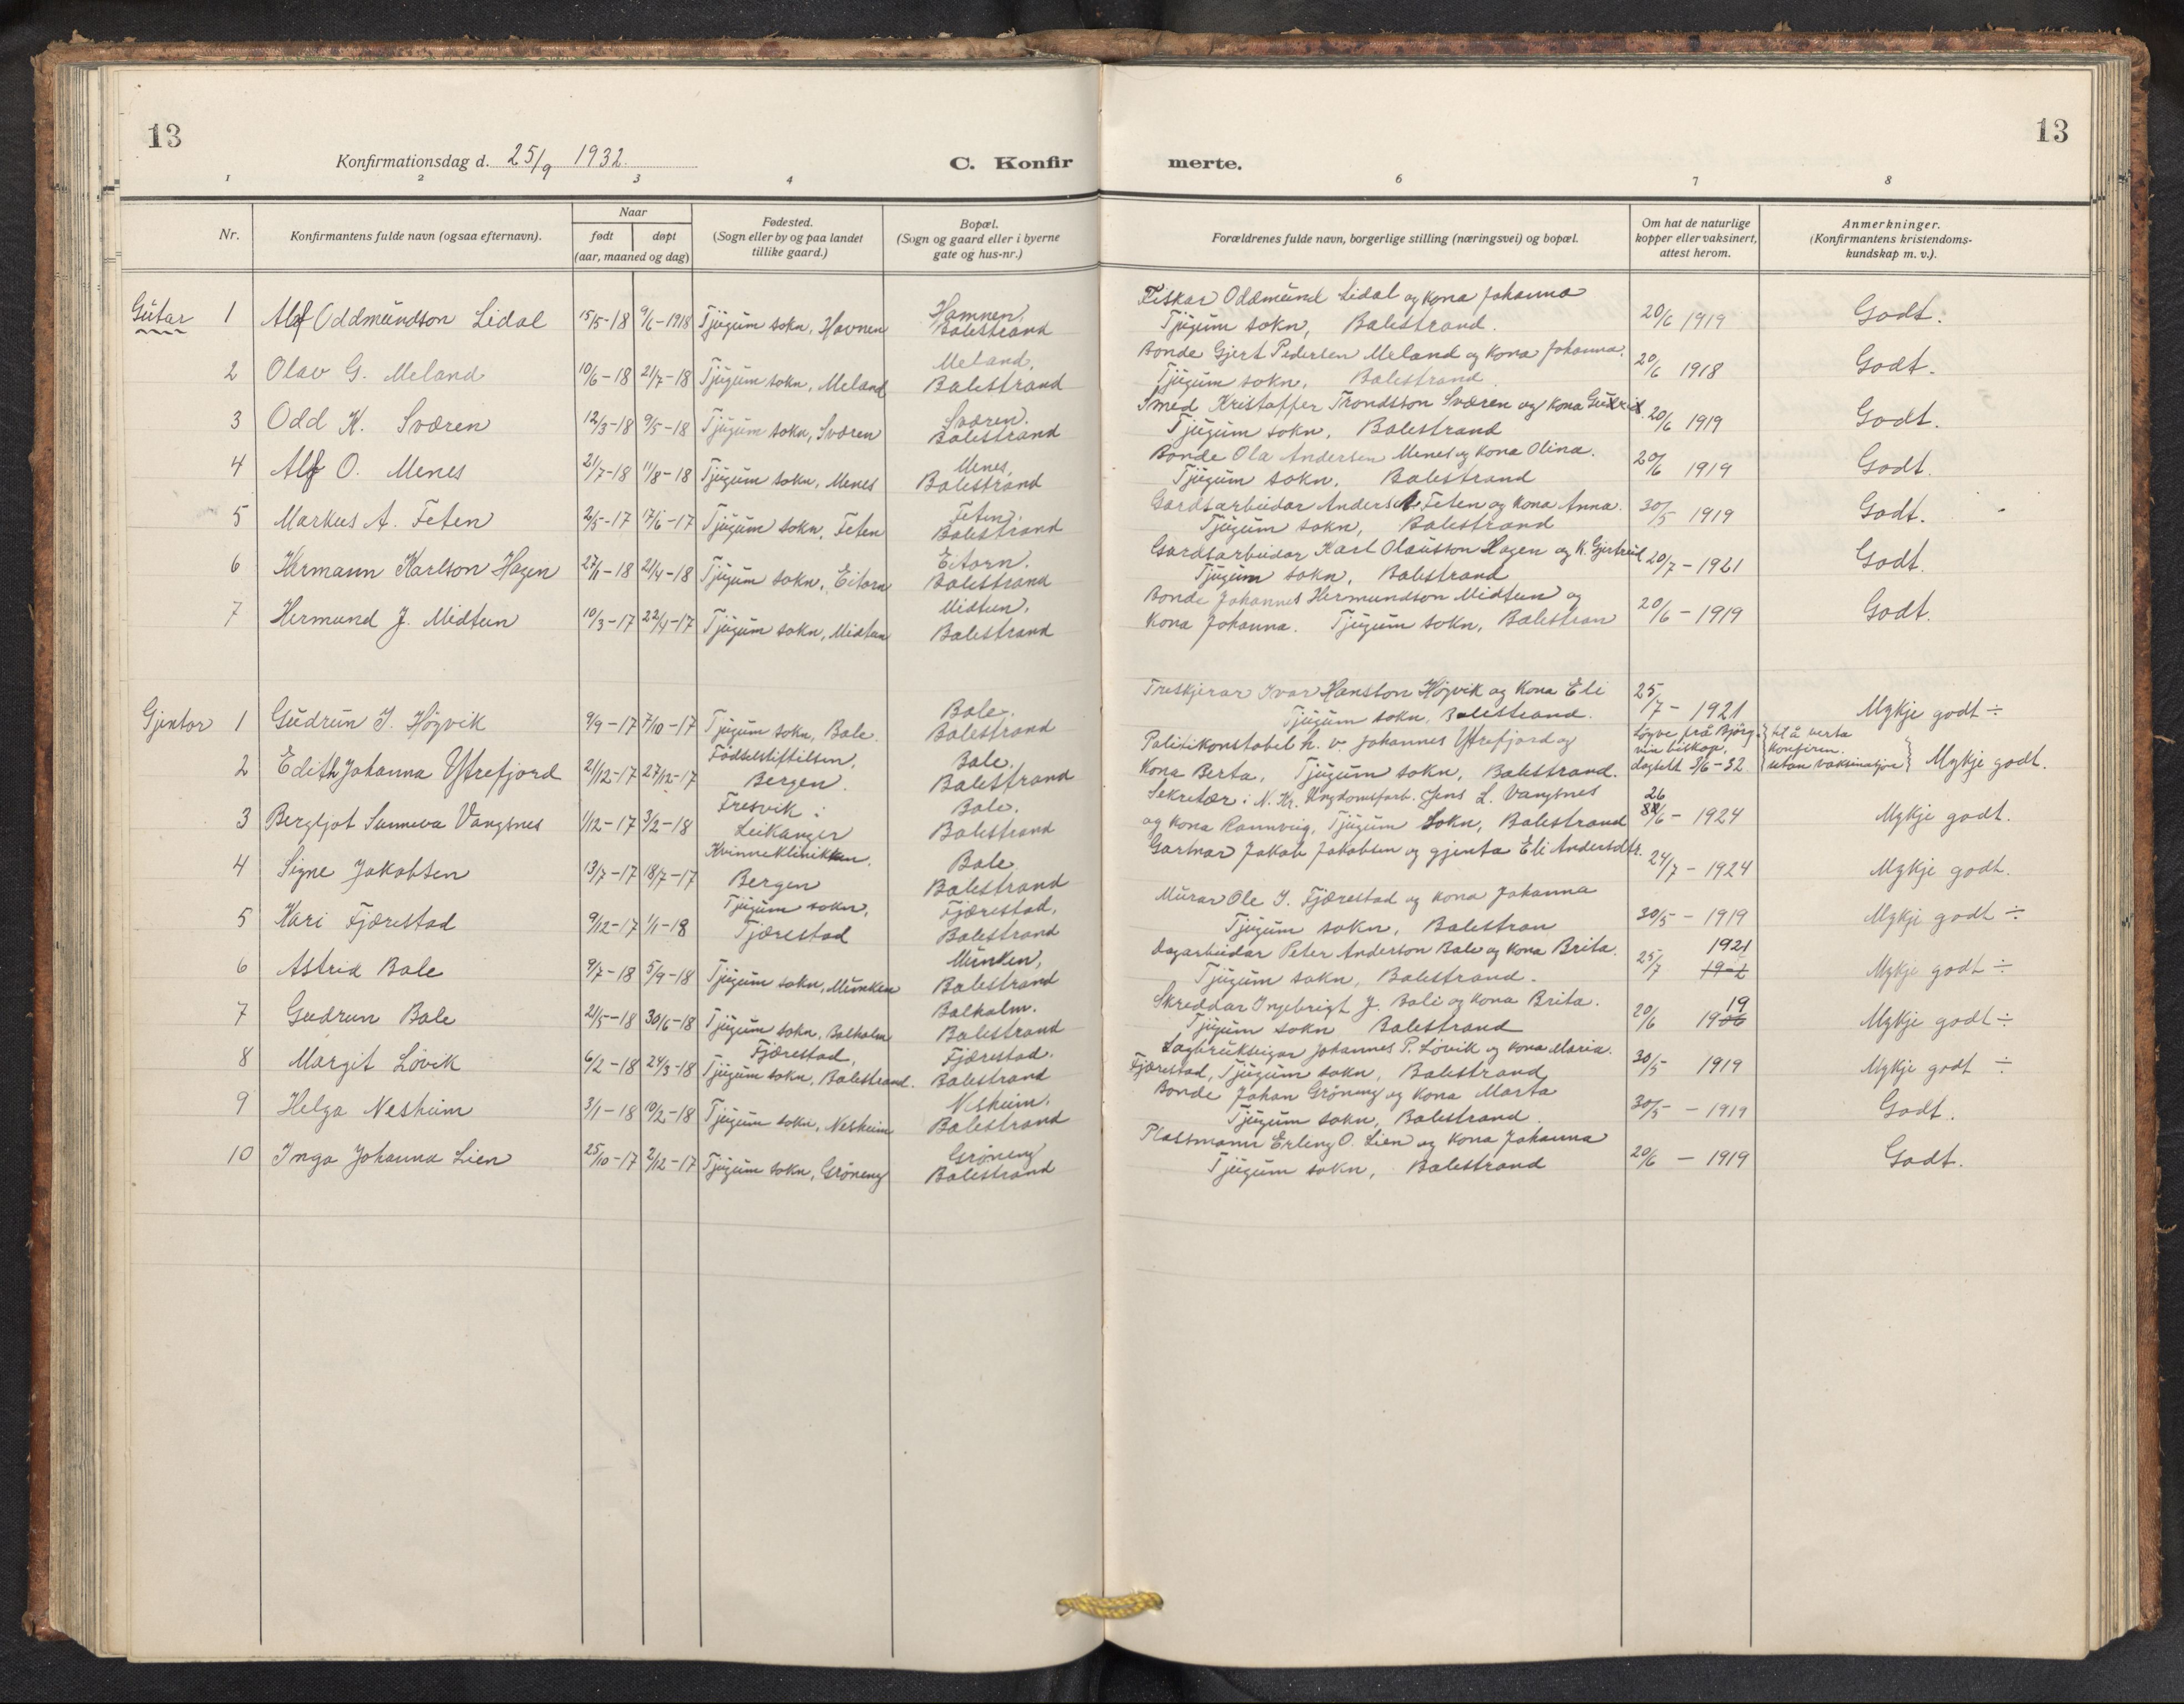 13
13
Konfirmationsdag d. 25/9 1932
C. Konfir
merte.
1 2 3 4 6 7 8
Nr.
Konfirmantens fulde navn (ogsaa efternavn).
Naar
født døpt
(aar, maaned og dag)
Fødested.
(Sogn eller by og paa landet
tillike gaard.)
Bopæl.
(Sogn og gaard eller i byerne
gate og hus-nr.)
Forældrenes fulde navn, borgerlige stilling (næringsvei) og bopæl.
Om hat de naturlige
kopper eller vaksinert,
attest herom.
Anmerkninger.
(Konfirmantens kristendoms-
kundskap m. v.).
Hamnen, Fiskar Oddmund Lidal og kona Johanna
Gutar 1 Alf Oddmundson Lidal 15/5-18 9/6-1918 Tjugum sokn, Havnen Balestrand Tjugum sokn, Balestrand. 20/6 1919 Godt.
Meland, Bonde Gjert Pedersen Meland og kona Johanna.
2 Olav G. Meland 10/6-18 21/7-18 Tjugum sokn, Meland Balestrand Tjugum sokn, Balestrand. 20/6 1918 Godt.
Sværen. Smed Kristoffer Trondsson Sværen og kona
3 Odd K. Sværen 12/3-18 9/5-18 Tjugum sokn, Sværen Balestrand Tjugum sokn, Balestrand 20/6 1919 Godt.
Menes, Bonde Ola Andersen Menes og kona Olina.
4 Alf O. Menes 21/7-18 11/8-18 Tjugum sokn, Menes Balestrand Tjugum sokn, Balestrand 20/6 1919 Godt.
Feten. Gardsarbeidar Anders A. Feten og kona Anna.
5 Markus A. Feten 2/5-17 17/6-17 Tjugum sokn, Feten Balestrand Tjugum sokn, Balestrand 30/5 1919 Godt.
Eitorn. Gardsarbeidar Karl Olausson Hagen og K. Gjertrud
6 Hermann Karlson Hagen 27/1-18 21/4-18 Tjugum sokn, Eitorn Balestrand Tjugum sokn, Balestrand 20/7-1921 Godt.
Midtun, Bonde Johannes Hermundson Midtun og
7 Hermund J. Midtun 10/3-17 22/4-17 Tjugum sokn, Midtun Balestrand kona Johanna. Tjugum sokn, Balestran 20/6-1919 Godt.
Bale. Treskjerar Ivar Hansson Høyvik og kona Eli
Gjentor 1 Gudrun I. Høyvik 9/9-17 7/10-17 Tjugum sokn, Bale. Balestrand Tjugum sokn, Balestrand. 25/7-1921 Mykje godt ÷
Fødselstiftelsen, Bale, Politikonstabel h. v. Johannes Ytrefjord og Løyve frå Bjørg- til å verta
2 Edith Johanna Ytrefjord 21/12-17 27/12-17 Bergen. Balestrand kona Berta, Tjugum sokn, Balestrand. vin biskop, konfirm.
dagsett 3/6-32 utan vaksinasjon Mykje godt.
Fresvik i Bale. Sekretær i N. Kr. Ungdomsforb. Jens L. Vangsnes 26
3 Bergljot Sunneva Vangsnes 1/12-17 3/2-18 Leikanger Balestrand og kona Rannveig, Tjugum sokn, Balestrand /6-1924 Mykje godt.
Kvinneklinikken, Bale Gartnar Jakob Jakobsen og gjenta Eli Andersdtr.
4 Signe Jakobsen 13/7-17 18/7-17 Bergen Balestrand 24/7-1924 Mykje godt.
Tjugum sokn, Fjærestad, Murar Ole I. Fjærestad og kona Johanna
5 Kari Fjærestad 9/12-17 1/1-18 Fjærestad Balestrand Tjugum sokn, Balestran 30/5-1919 Mykje godt ÷
Munken, Dagarbeidar Peter Anderson Bale og kona Brita. 1921
6 Astrid Bale 9/7-18 5/9-18 Tjugum sokn, Munken Balestrand Tjugum sokn, Balestrand. 25/7 Mykje godt ÷
Balholm. Skreddar Ingebrigt J. Bale og kona Brita. 19
7 Gudrun Bale 21/5-18 30/6-18 Tjugum sokn, Balholm Balestrand Tjugum sokn Balestrand 20/6 1906 Mykje godt ÷
Fjærestad, Fjærestad. Sagbrukseigar Johannes P. Løvik og kona Maria.
8 Margit Løvik 6/2-18 24/3-18 Tjugum sokn, Balestrand. Balestrand Fjærestad, Tjugum sokn, Balestrand 30/5 1919 Mykje godt ÷
Nesheim. Bonde Johan Grøneng og kona Marta
9 Helga Nesheim 3/1-18 10/2-18 Tjugum sokn, Nesheim Balestrand Tjugum sokn, Balestrand. 30/5-1919 Godt.
Grøneng Plassmann Erling O. Lien og kona Johanna
10 Inga Johanna Lien 25/10-17 2/12-17 Tjugum sokn, Grøneng Balestrand Tjugum sokn, Balestrand 20/6-1919 Godt.